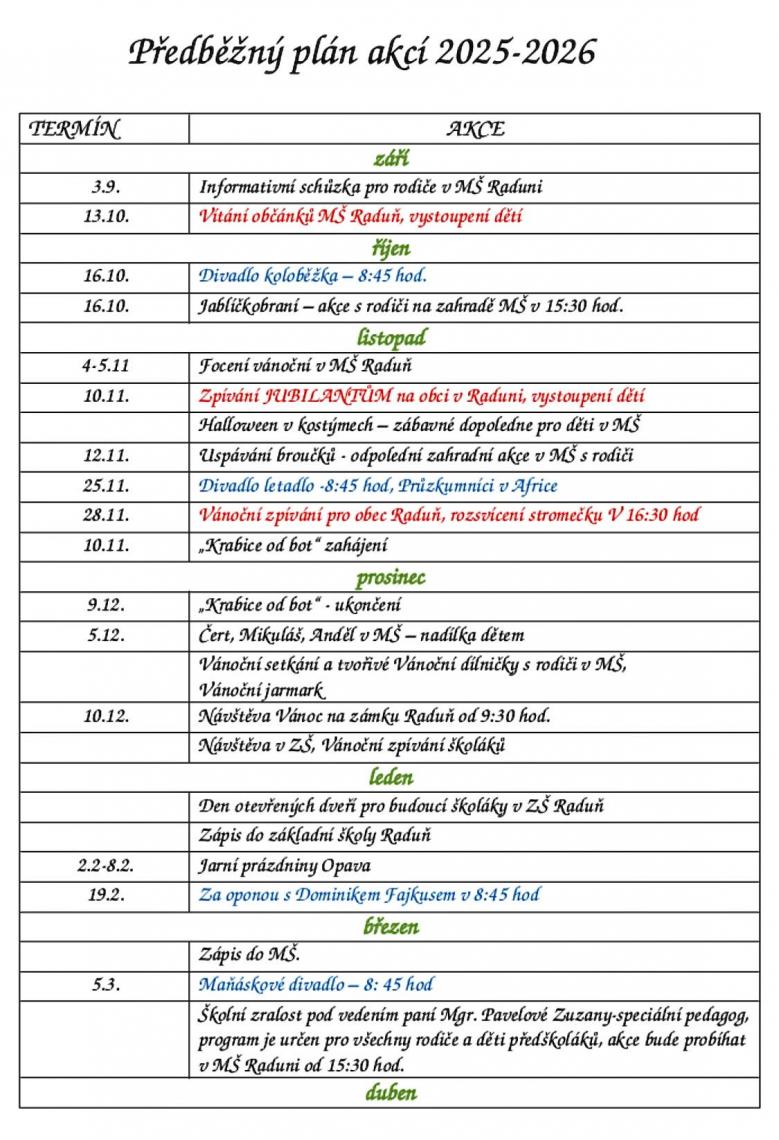 Předběžný plán akcí 2025-2026
TERMÍN AKCE
září
3.9. Informativní schůzka pro rodiče v MŠ Raduni
13.10. Vítání občánků MŠ Raduň, vystoupení dětí
říjen
16.10. Divadlo koloběžka – 8:45 hod.
16.10. Jablíčkobraní – akce s rodiči na zahradě MŠ v 15:30 hod.
listopad
4-5.11 Focení vánoční v MŠ Raduň
10.11. Zpívání JUBILANTŮM na obci v Raduni, vystoupení dětí
Halloween v kostýmech – zábavné dopoledne pro děti v MŠ
12.11. Uspávání broučků - odpolední zahradní akce v MŠ s rodiči
25.11. Divadlo letadlo -8:45 hod, Průzkumníci v Africe
28.11. Vánoční zpívání pro obec Raduň, rozsvícení stromečku V 16:30 hod
10.11. „Krabice od bot“ zahájení
prosinec
9.12. „Krabice od bot“ - ukončení
5.12. Čert, Mikuláš, Anděl v MŠ – nadílka dětem
Vánoční setkání a tvořivé Vánoční dílničky s rodiči v MŠ,
Vánoční jarmark
10.12. Návštěva Vánoc na zámku Raduň od 9:30 hod.
Návštěva v ZŠ, Vánoční zpívání školáků
leden
Den otevřených dveří pro budoucí školáky v ZŠ Raduň
Zápis do základní školy Raduň
2.2-8.2. Jarní prázdniny Opava
19.2. Za oponou s Dominikem Fajkusem v 8:45 hod
březen
Zápis do MŠ.
5.3. Maňáskové divadlo – 8: 45 hod
Školní zralost pod vedením paní Mgr. Pavelové Zuzany-speciální pedagog,
program je určen pro všechny rodiče a děti předškoláků, akce bude probíhat
v MŠ Raduni od 15:30 hod.
duben